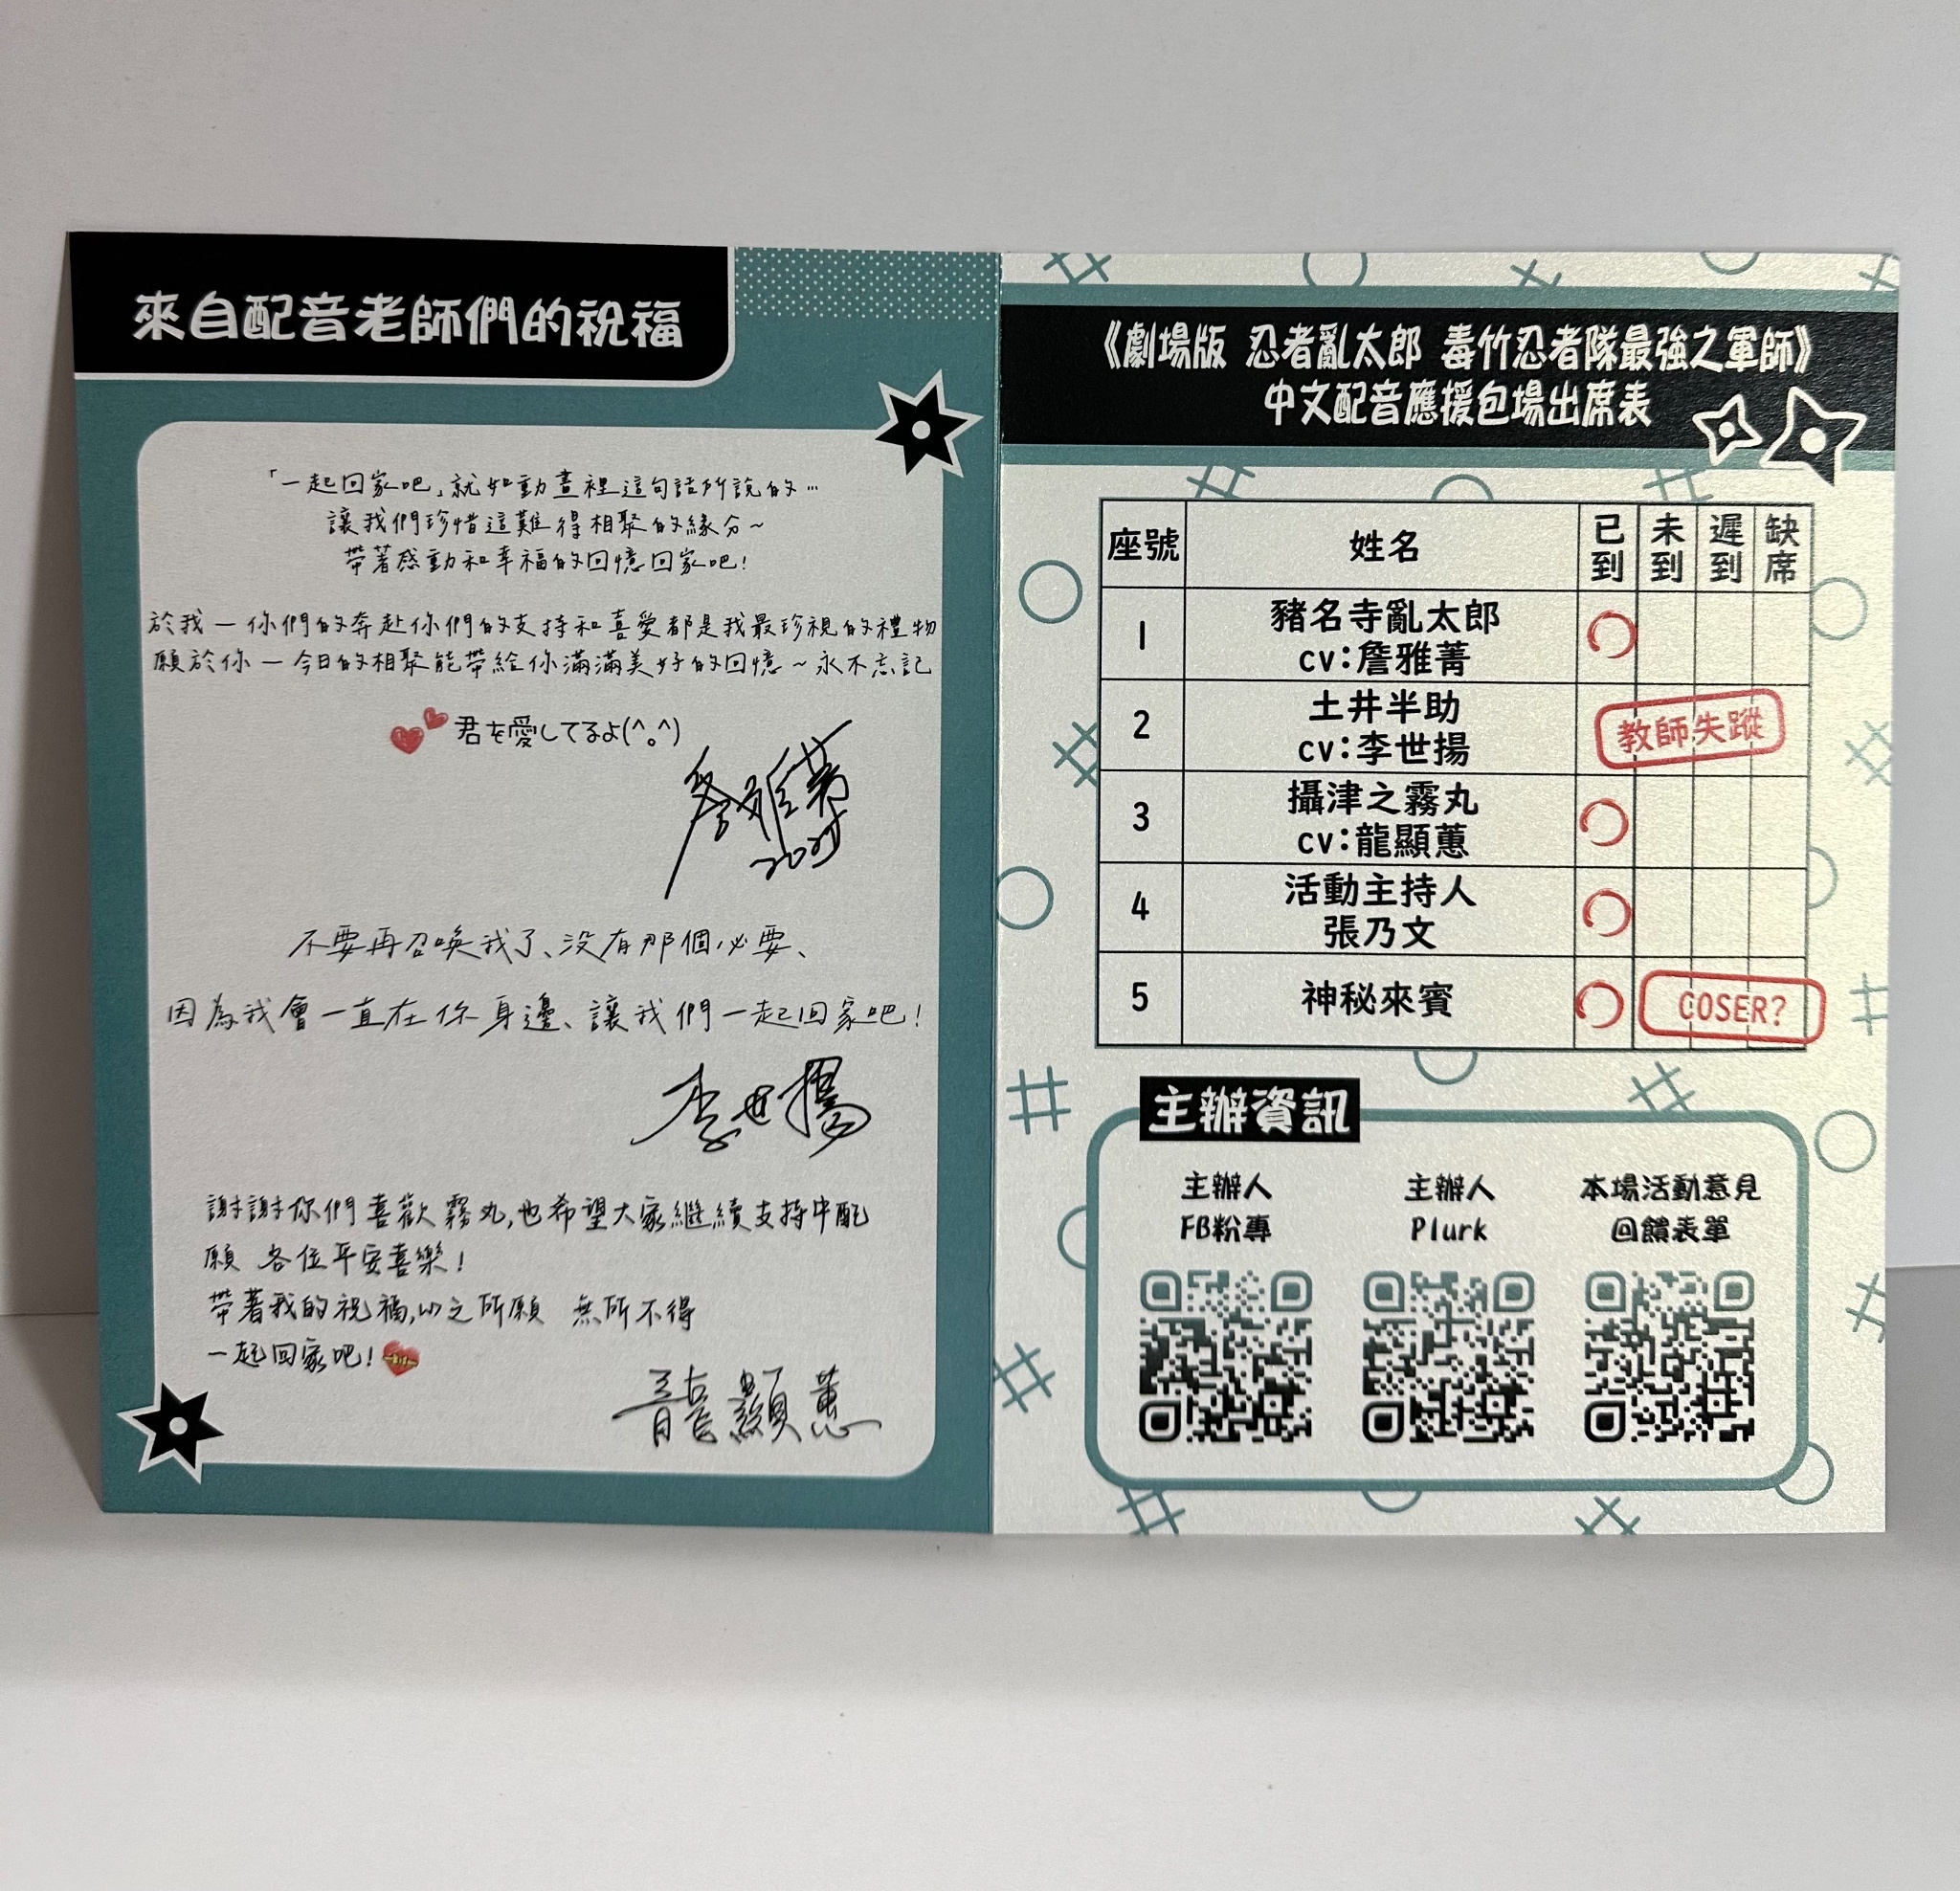 來自配音老師們的祝福
「一起回家吧」就如動畫裡這句話所說的…
讓我們珍惜這難得相聚的緣分~
帶著感動和幸福的回憶回家吧!
於我—你們的奔赴你們的支持和喜愛都是我最珍視的禮物
願於你—今日的相聚能帶給你滿滿美好的回憶~永不忘記
君を愛してるよ(^。^)
詹雅菁
2025
不要再召喚我了、没有那個必要、
因為我會一直在你身邊、讓我們一起回家吧!
李世揚
謝謝你們喜歡霧丸,也希望大家繼續支持中配
願 各位平安喜樂!
帶著我的祝福,心之所願 無所不得
一起回家吧!
龍顯蕙
《劇場版 忍者亂太郎 毒竹忍者隊最強之軍師》
中文配音應援包場出席表
座號 姓名 已到 未到 遲到 缺席
1 豬名寺亂太郎
cv:詹雅菁
2 土井半助
cv:李世揚
教師失蹤
3 攝津之霧丸
cv:龍顯蕙
4 活動主持人
張乃文
5 神秘來賓
COSER?
主辦資訊
主辦人
FB粉專
主辦人
Plurk
本場活動意見
回饋表單